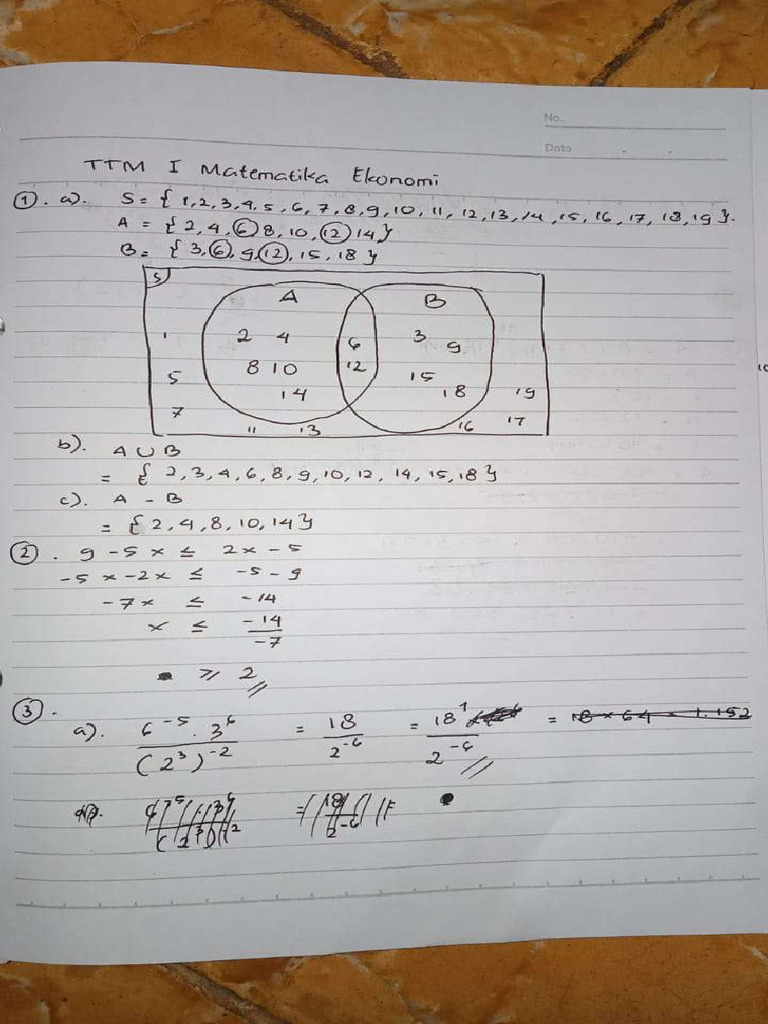 No.
Date
TTM I Matematika Ekonomi
1. a). S = { 1, 2, 3, 4, 5, 6, 7, 8, 9, 10, 11, 12, 13, 14, 15, 16, 17, 18, 19 }.
A = { 2, 4, 6, 8, 10, 12, 14 }
B = { 3, 6, 9, 12, 15, 18 }
S
A B
1 2 4 6 3 9
8 10 12
5 14 15 18 19
7 11 13 16 17
b). A ∪ B
= { 2, 3, 4, 6, 8, 9, 10, 12, 14, 15, 18 }
c). A - B
= { 2, 4, 8, 10, 14 }
2. 9 - 5x ≤ 2x - 5
-5x - 2x ≤ -5 - 9
-7x ≤ -14
x ≤ -14/-7
≥ 2
3. a). 6^-5 . 3^6 / (2^3)^-2 = 18 / 2^-6 = 18^1 / 2^-6 = 18 x 64 = 1.152